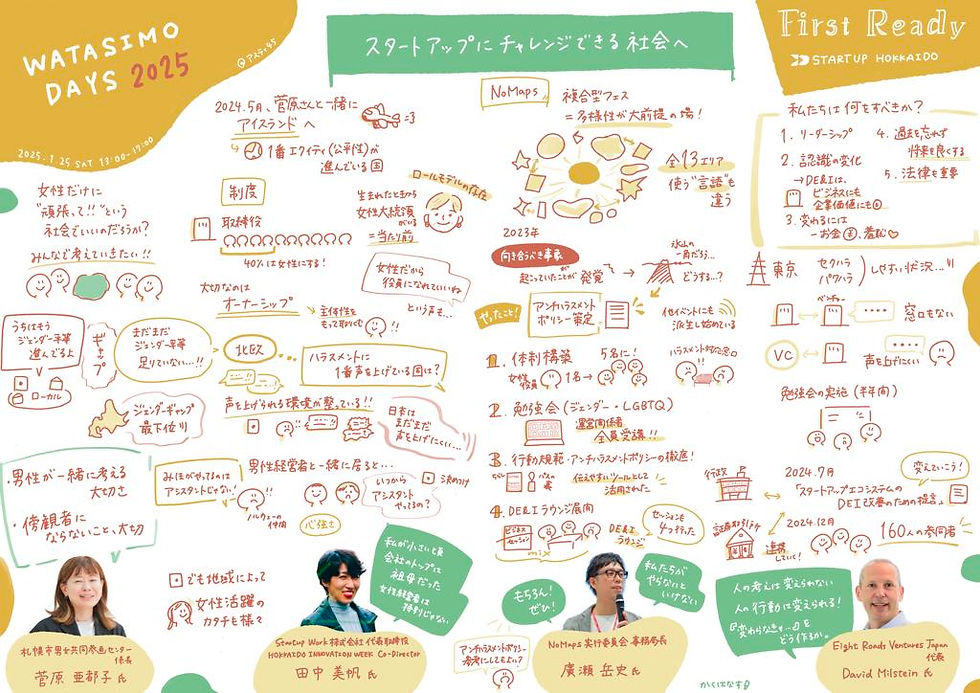 WATASIMO
DAYS 2025
@アスティ45
2025.1.25 SAT 13:00-19:00
スタートアップにチャレンジできる社会へ
First Ready
STARTUP HOKKAIDO
女性だけに
"頑張って!!"という
社会でいいのだろうか?
みんなで考えていきたい!!
うちはそう
ジェンダー平等
進んでるよ
ローカル
ギャップ
まだまだ
ジェンダー平等
足りていない…!!
ジェンダーギャップ
最下位!!
・男性が一緒に考える
大切さ
・傍観者に
ならないこと、大切
2024.5月、菅原さんと一緒に
アイスランドへ
1番エクイティ(公平性)が
進んでいる国
制度
取締役
40%は女性にする!
生まれたときから
女性大統領
がいる
=当たり前
ロールモデルの存在
大切なのは
オーナーシップ
主体性を
もって取りくむ
!!
女性だから
役員になれていいね
という声も…
北欧
ハラスメントに
1番声を上げている国は?
声を上げられる環境が整っている!!
日本は
まだまだ
声を上げにくい…
み任がやってるのは
アシスタントじゃない!
ノルウェーの仲間
男性経営者と一緒に居ると…
心強さ
いつから
アシスタント
やってるの?
決めつけ
でも地域によって
女性活躍の
カタチも様々
私が小さい頃
会社のトップは
祖母だった
女性経営者は
特別じゃない
NoMaps
複合型フェス
=多様性が大前提の場!
全13エリア
使う"言語"も
違う
2023年
向き合うべき事象
起こっていたことが発覚
氷山の
一角だろ…
どうする…?
やったこと!
アンチハラスメント
ポリシー策定
他イベントにも
派生し始めている
1. 体制構築
女性
役員
1名→
5名に!
ハラスメント対応窓口
2. 勉強会(ジェンダー・LGBTQ)
運営関係者
全員受講!!
3. 行動規範・アンチハラスメントポリシーの徹底!
伝えやすいツールとして
活用された
4. DE&Iラウンジ展開
ビジネス
セッション
mix
DE&I
ラウンジ
セッションも
4つ行った
もちろん!
ぜひ!
私たちが
やらないと
いけない
アンチハラスメントポリシー
参考にしてもよい?
私たちは何をすべきか?
1. リーダーシップ
2. 認識の変化
→DE&Iは、
ビジネスにも
企業価値にも
3. 変わるには
-お金、羞恥心
4. 過去を忘れず
将来を良くする
5. 法律も重要
東京
セクハラ
パワハラ
しやすい状況…!!
ベンチャー
窓口もない
VC
声を上げにくい
勉強会の実施(半年間)
行政
2024.7月
変えていこう!
「スタートアップエコシステムの
DEI改善のための提言」
証券取引所
連携
していく!
2024.12月
160人の参加者
人の考えは変えられない
人の行動は変えられる!
『変わらなきゃ…』を
どう作るか。
札幌市男女共同参画センター
係長
菅原 亜都子 氏
Startup Work株式会社 代表取締役
HOKKAIDO INNOVATION WEEK Co-Director
田中 美帆 氏
NoMaps 実行委員会 事務局長
廣瀬 岳史 氏
Eight Roads Ventures Japan
代表
David Milstein 氏
かくはなす